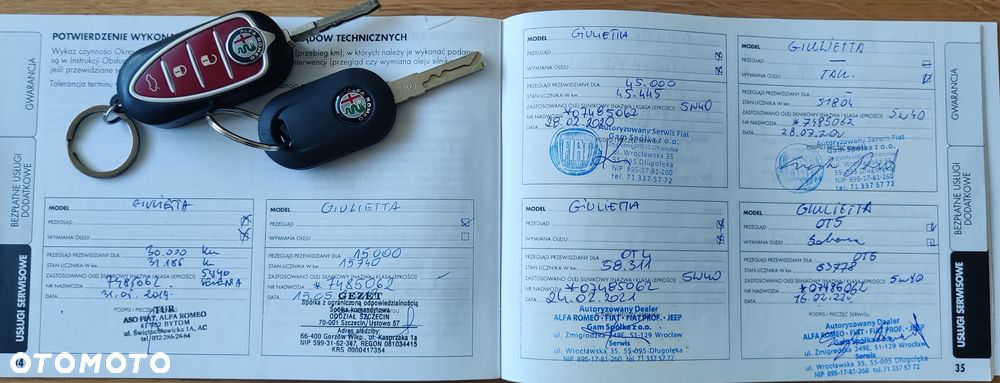 POTWIERDZENIE WYKONA
DÓW TECHNICZNYCH
GWARANCJA
BEZPŁATNE USŁUGI DODATKOWE
USŁUGI SERWISOWE
MODEL GIULIETTA
PRZEGLĄD
WYMIANA OLEJU
PRZEGLĄD PRZEWIDZIANY DLA 30.000 km
STAN LICZNIKA W km 31.186 k
ZASTOSOWANO OLEJ SILNIKOWY (NAZWA I KLASA LEPKOŚCI) 5W40
NR NADWOZIA 7485062
DATA 31.01.2019.
PODPIS I PIECZ
TUR
ASO FIAT, ALFA ROMEO
BYTOM
ul. Świętochłowicka 1A, AC
MODEL GIULIETTA
PRZEGLĄD
WYMIANA OLEJU
PRZEGLĄD PRZEWIDZIANY DLA 15000
STAN LICZNIKA W km 15940
ZASTOSOWANO OLEJ SILNIKOWY (NAZWA I KLASA LEPKOŚCI)
NR NADWOZIA *7485062
DATA 15.05
GEZET
Spółka z ograniczoną odpowiedzialnością
Spółka komandytowa
ODDZIAŁ SZCZECIN
70-001 Szczecin/Ustowo 57
Adres siedziby:
66-400 Gorzów Wlkp., ul. Kasprzaka 1a
NIP 599-31-62-347, REGON 081034415
KRS 0000417354
MODEL GIULIETTA
PRZEGLĄD
WYMIANA OLEJU
PRZEGLĄD PRZEWIDZIANY DLA 45.000
STAN LICZNIKA W km 45.445
ZASTOSOWANO OLEJ SILNIKOWY (NAZWA I KLASA LEPKOŚCI) 5W40
NR NADWOZIA *07485062
DATA 28.02.2020
Autoryzowany Serwis Fiat
Gam Spółka z o.o.
FIAT
ul. Wrocławska 35
55-095 Długołęka
NIP 895-17-81-260
tel. 71 337 57 72
MODEL GIULIETTA
PRZEGLĄD
WYMIANA OLEJU TAK.
PRZEGLĄD PRZEWIDZIANY DLA –
STAN LICZNIKA W km 51804
ZASTOSOWANO OLEJ SILNIKOWY (NAZWA I KLASA LEPKOŚCI) 5W40
NR NADWOZIA *7485062
Autoryzowany Serwis Fiat
Gam Spółka z o.o.
ul. Wrocławska 35
NIP 895-17-81-260
tel. 71 337 57 72
MODEL GIULIETTA
PRZEGLĄD
WYMIANA OLEJU
PRZEGLĄD PRZEWIDZIANY DLA OT4
STAN LICZNIKA W km 58.311
ZASTOSOWANO OLEJ SILNIKOWY (NAZWA I KLASA LEPKOŚCI) 5W40
NR NADWOZIA *07485062
DATA 24.02.2021
Autoryzowany Dealer
ALFA ROMEO - FIAT - FIAT PROF. - JEEP
Gam Spółka z o.o.
ul. Żmigrodzka 249E, 51-129 Wrocław
Serwis
ul. Wrocławska 35, 55-095 Długołęka
NIP 895-17-81-260 tel. 71 337 57 72
MODEL GIULIETTA
PRZEGLĄD OT5
WYMIANA OLEJU
PRZEGLĄD PRZEWIDZIANY DLA OT5
STAN LICZNIKA W km 63778
ZASTOSOWANO OLEJ SILNIKOWY (NAZWA I KLASA LEPKOŚCI) 5W40
NR NADWOZIA *07485062
DATA 16.02.22
PODPIS I PIECZĄTKA SERWISU
Autoryzowany Dealer
ALFA ROMEO - FIAT - FIAT PROF. - JEEP
Gam Spółka z o.o.
ul. Żmigrodzka 249E, 51-129 Wrocław
Serwis
ul. Wrocławska 35, 55-095 Długołęka
NIP 895-17-81-260 tel. 71 337 57 72
GWARANCJA
BEZPŁATNE USŁUGI DODATKOWE
USŁUGI SERWISOWE
35
OTOMOTO